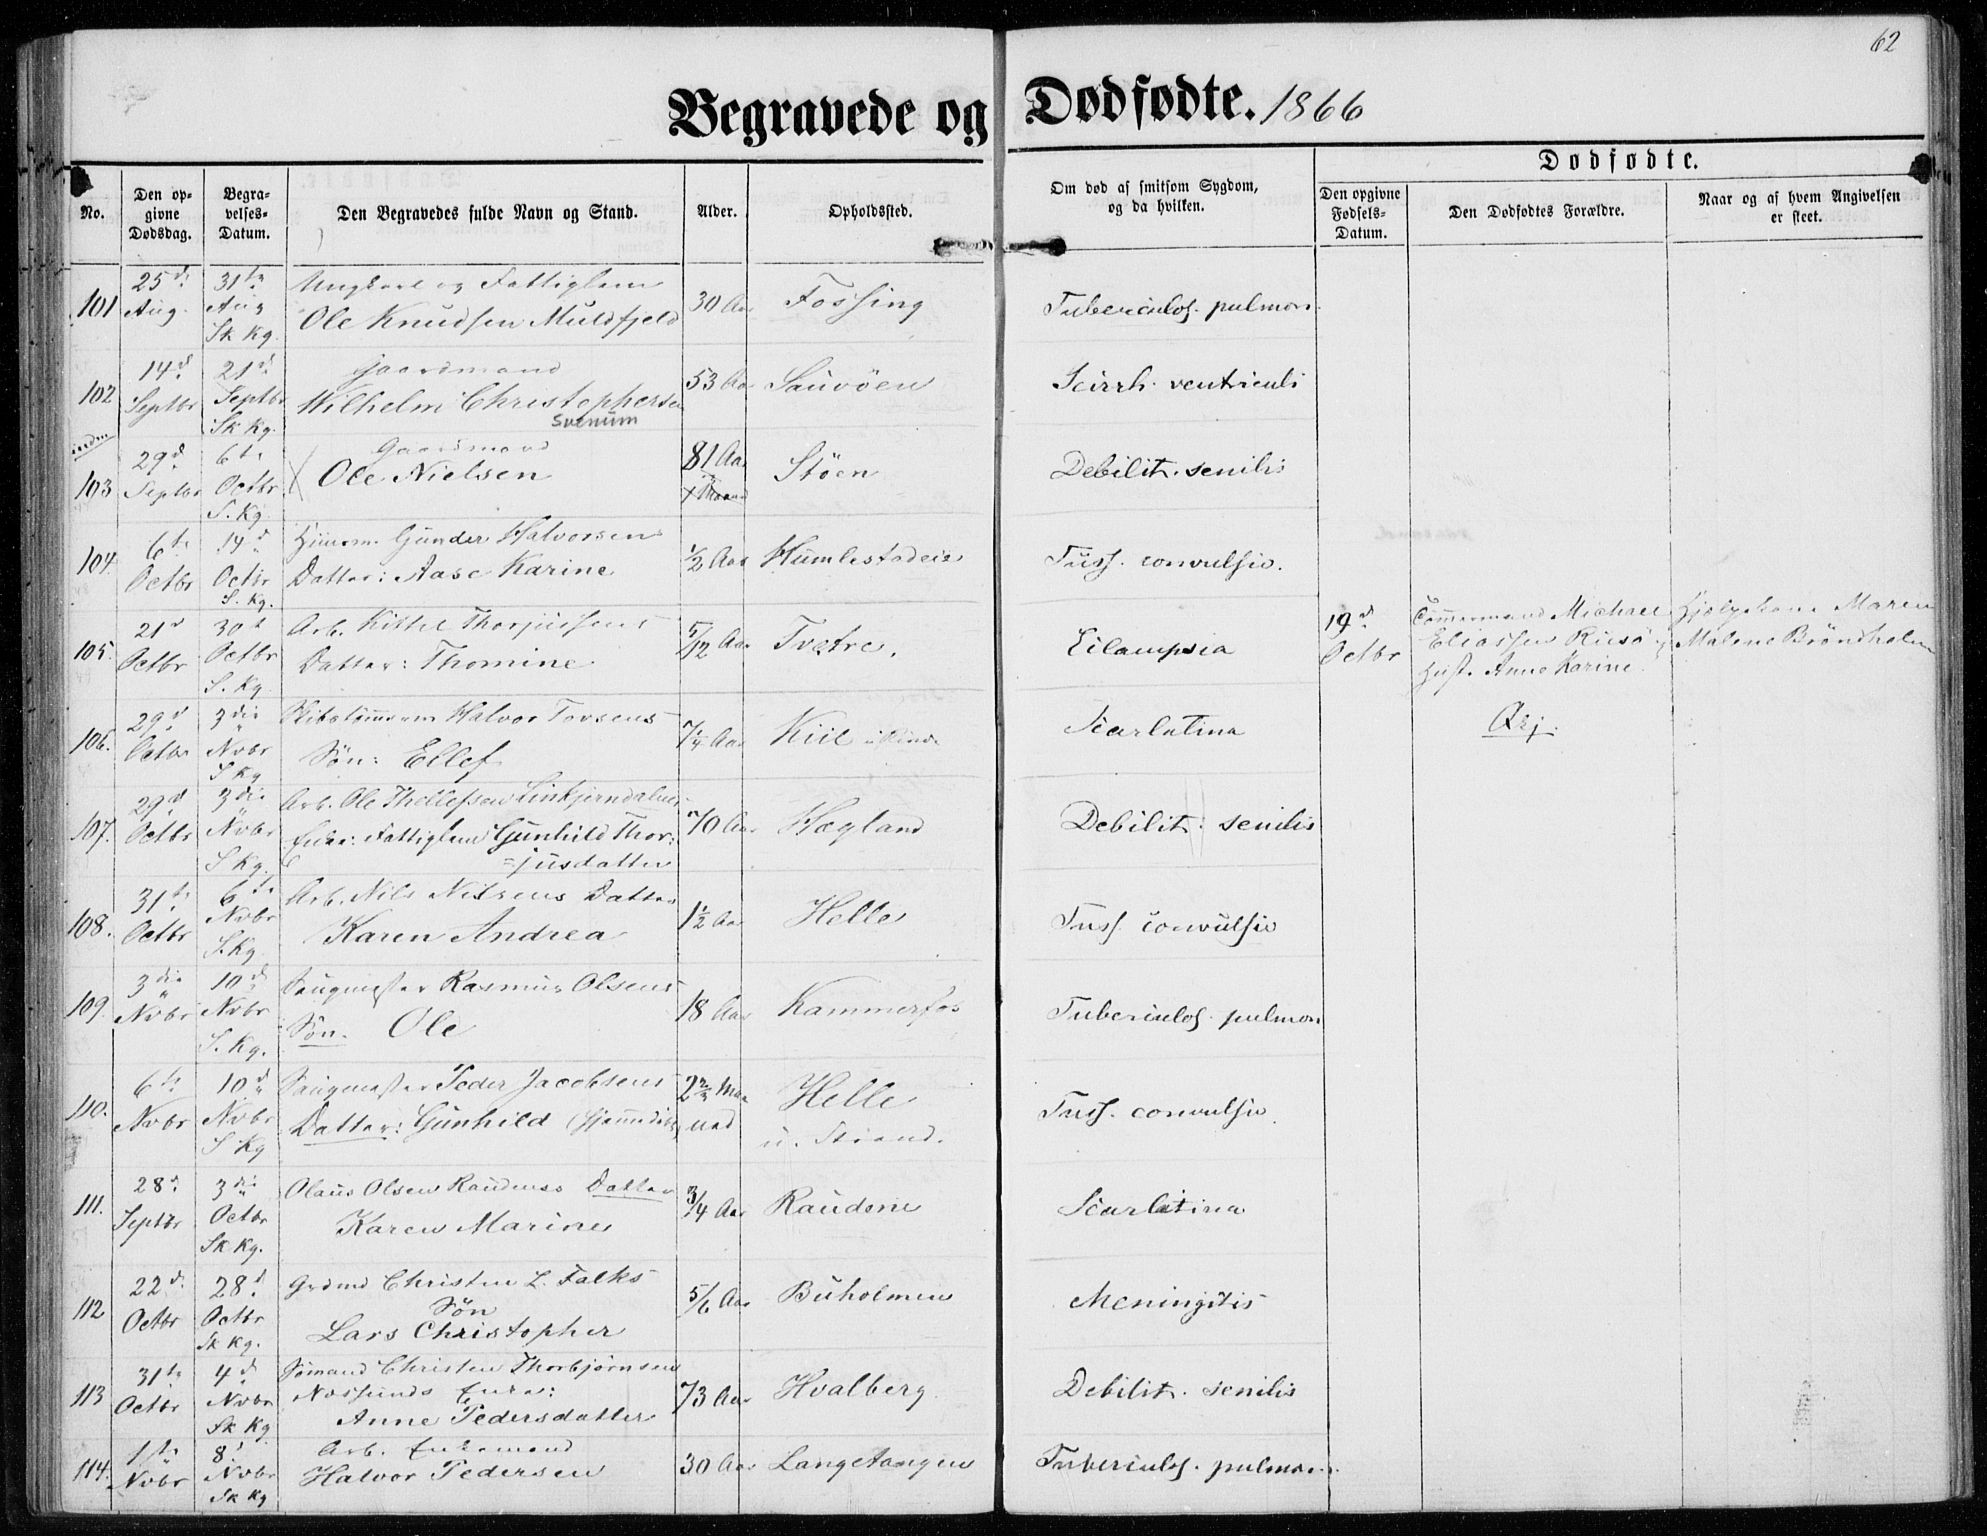 62
Begravede og Dødfødte. 1866
No.
Den opgivne Dødsdag.
Begravelses-Datum.
Den Begravedes fulde Navn og Stand.
Alder.
Opholdssted.
Om død af smitsom Sygdom, og da hvilken.
Dødfødte.
Den opgivne Fødsels-Datum.
Den Dødfødtes Forældre.
Naar og af hvem Angivelsen er skeet.
101 25de Aug. 31te Aug Sk Kg. Ungkarl og Fattiglem
Ole Knudsen Muldfjeld 30 Aar Fossing Tuberculos. pulmon.
102 14d Septbr 21d Septbr Sk Kg. Gaardmand
Wilhelm Christophersen 53 Aar Sauvöen Scirrh. ventriculi
Svenum
103 29d Septbr 6te Octbr S. Kg. Gaardmand
Ole Nielsen 81 Aar Stöen Debilit. senilis
104. 6te Octbr 14d Octbr S. Kg. Huusm. Gunder Halvorsens
Datter: Aase Karine 1/2 Aar Humlestadeie Tuss. convulsiv.
105. 21d Octbr 30t Octbr S. Kg. Arb. Kittel Thorjussens
Datter: Thomine 5/12 Aar Tvetre. Eclampsia
19d Octbr Tömmermand Michael
Eliassen Riisö
Hust. Anne Karine
Hjelpekone Maren
Malene Bröndholm
106. 29d Octbr 3die Nvbr S Kg Halvor Tovsens
Sön: Ellef 7 1/4 Aar Kiil Scarlatina
107. 29d Octbr 3die Nvbr S Kg. Arb. Ole Thellefsen
Enke: Fattiglem Gunhild Thor-
=jusdatter 70 Aar Hægland Debilit. senilis
108. 31te Octbr 6te Nvbr S. Kg Arb. Nils Nilsens Datter
Karen Andrea 1 1/2 Aar Helle Tuss. convulsiv
109. 3die Nvbr 10d Nvbr S. Kg. Saugmester Rasmus Olsens
Sön. Ole 18 Aar Kammerfos Tuberculos. pulmon
110. 6te Nvbr 10d Nvbr S Kg Saugmester Peder Jacobsens
Datter: Gunhild (hjemmedöbt) 2 2/3 Maaned Helle
u. Strand. Tuss. convulsiv.
111. 28d Septbr 3die Octbr Sk Kg. Olaus Olsen Raudenes Datter
Karen Marine 3/4 Aar Raudene Scarlatina
112 22d Octbr 28d Octbr Sk Kg. Grdmd Christen L. Falks
Sön
Lars Christopher 5/6 Aar Buholmen Meningitis
113 31te Octbr 4d Nvbr Sk Kg Sömand Christen Thorbjörnsen
Næssunds Enke:
Anne Pedersdatter 73 Aar Hvalberg Debilit. senilis
114. 1te Nvbr 8d Nvbr Sk Kg Arb. Enkemand
Halvor Pedersen 30 Aar Langetangen Tuberculos. pulmon.